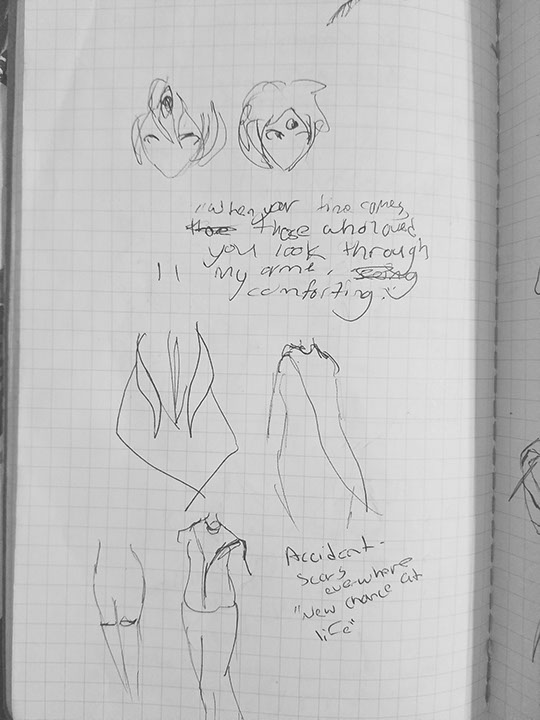 "When your time comes,
those who loved
you look through
my arms,
comforting.
Accident -
scars
everwhere
"New chance at
life"